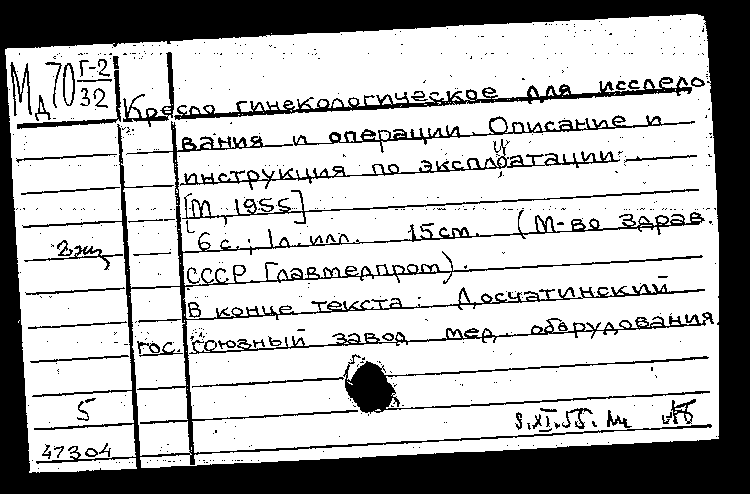 Мд 70 Г-2
32
Кресло гинекологическое для исследо
вания и операции. Описание и
инструкция по эксплуатации.
[М., 1955]
6 с.; 1 л. илл. 15 см. (М-во здрав.
СССР. Главмедпром).
2 экз
В конце текста: Досчатинский
гос. союзный завод мед. оборудования.
5
9.XI.55.
47304